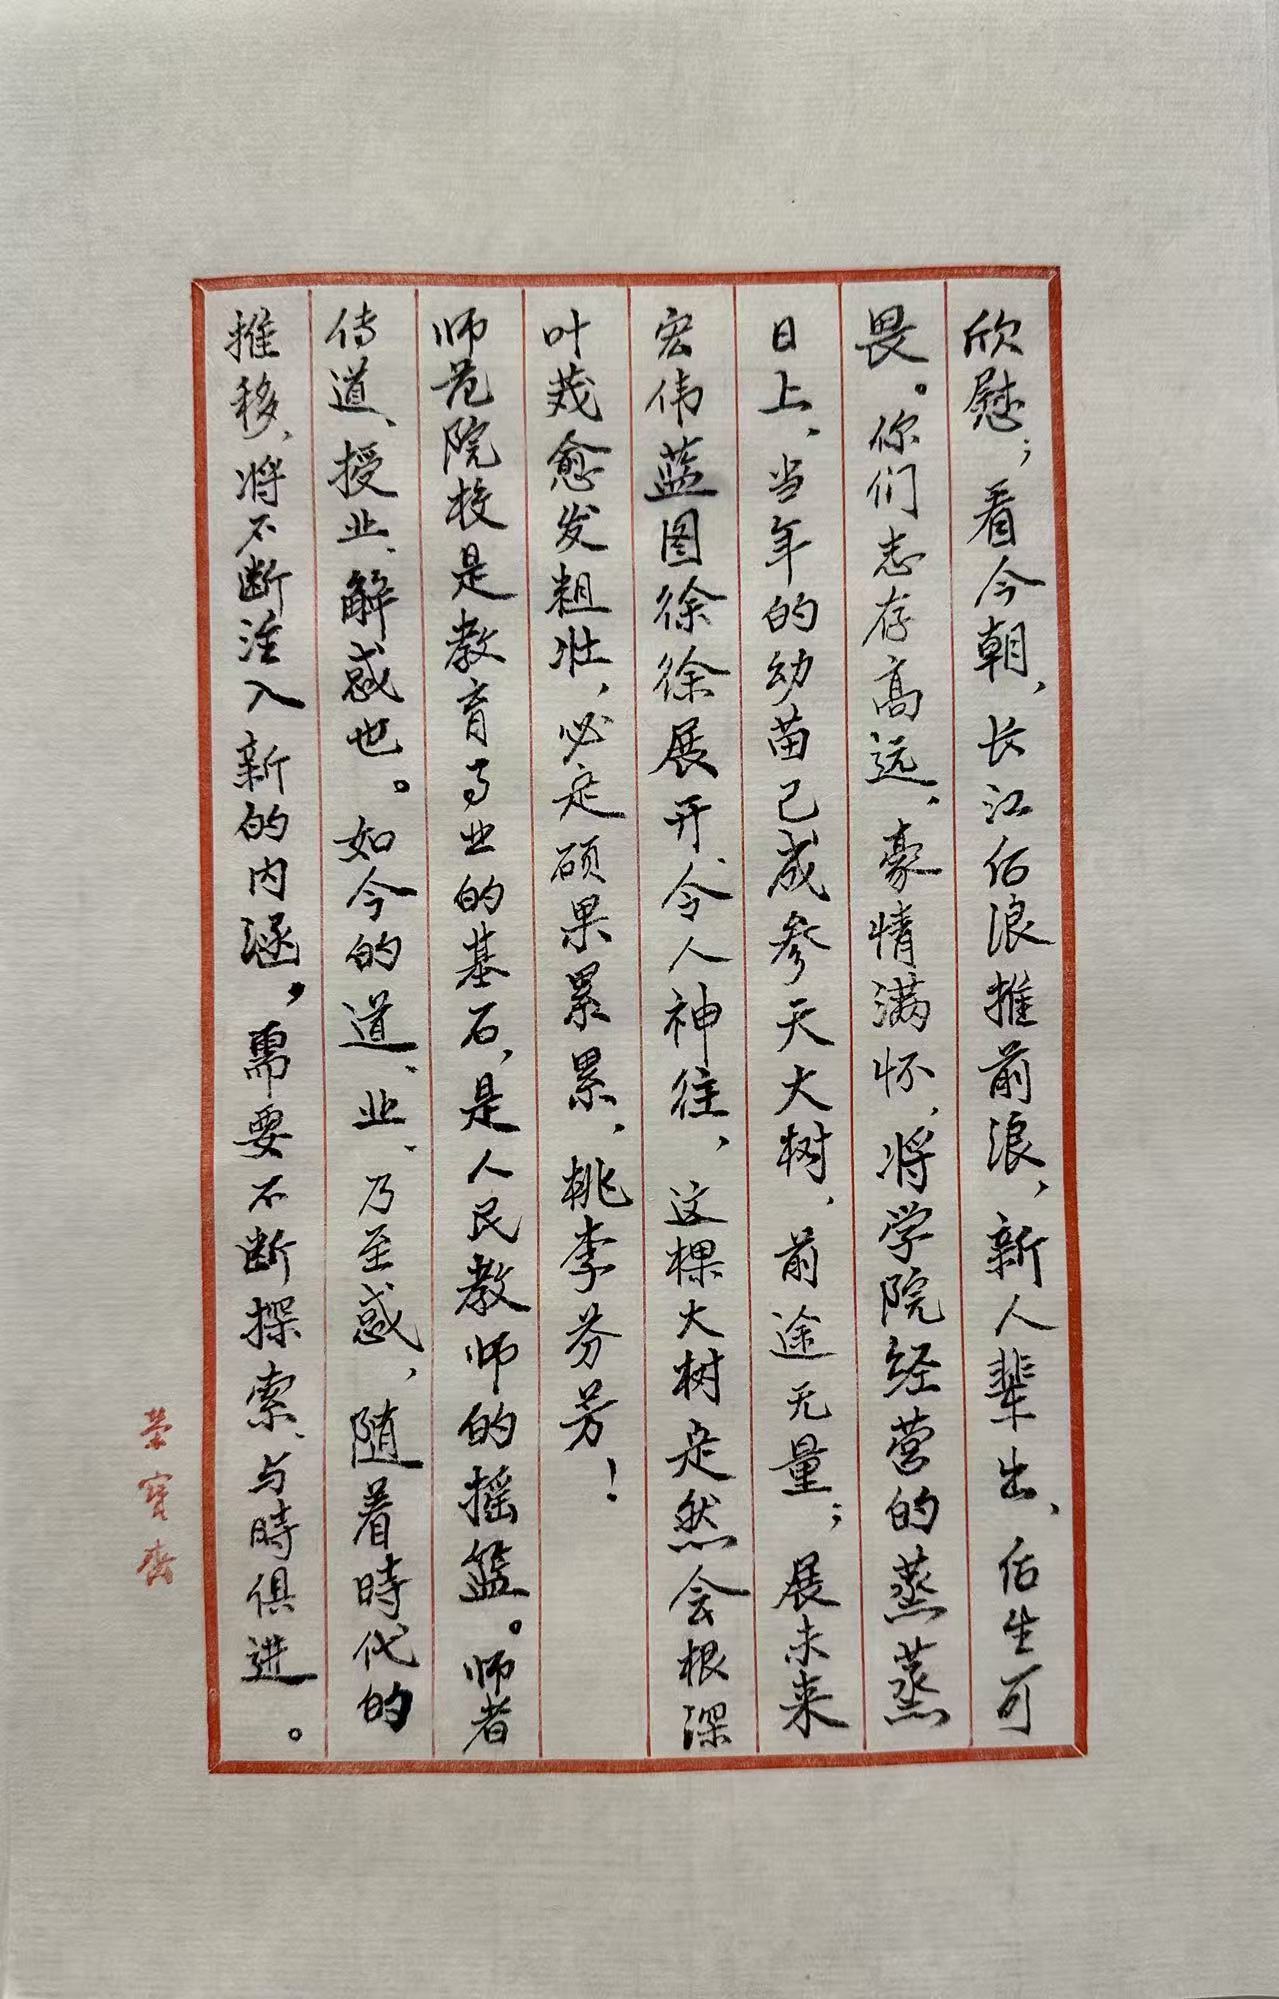 欣慰；看今朝，长江后浪推前浪，新人辈出、后生可
畏。你们志存高远、豪情满怀，将学院经营的蒸蒸
日上，当年的幼苗已成参天大树，前途无量；展未来
宏伟蓝图徐徐展开，令人神往，这棵大树定然会根深
叶茂愈发粗壮，必定硕果累累，桃李芬芳！
师范院校是教育事业的基石，是人民教师的摇篮。师者
传道、授业、解惑也。如今的道、业、乃至惑，随着時代的
推移，将不断注入新的内涵，需要不断探索、与時俱进。
荣宝斋